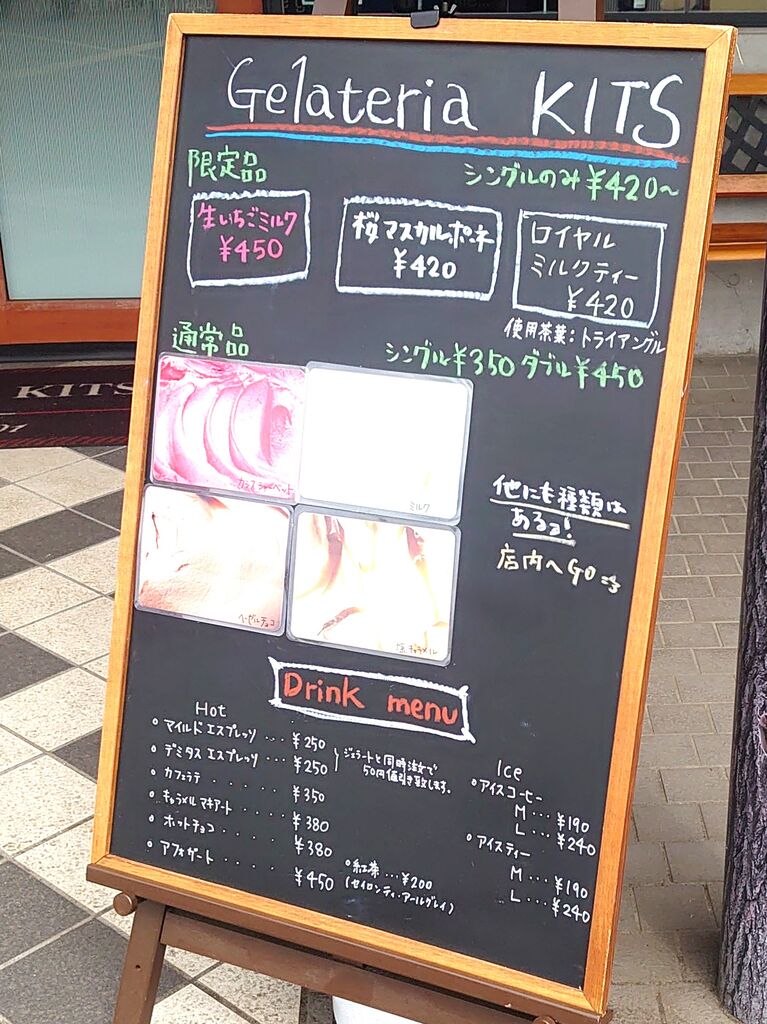 Gelateria KITS
限定品
シングルのみ ¥420〜
生いちごミルク
¥450
桜マスカルポーネ
¥420
ロイヤル
ミルクティー
¥420
使用茶葉:トライアングル
通常品
シングル¥350 ダブル¥450
ミルク
ヘーゼルチョコ
塩キャラメル
他にも種類は
あるョ!
店内へGO⇒
Drink menu
Hot
マイルドエスプレッソ … ¥250
デミタスエスプレッソ … ¥250
ジェラートと同時注文で
50円値引き致します。
カフェラテ ¥350
キャラメルマキアート … ¥380
ホットチョコ ¥380
アフォガート ¥450
紅茶 … ¥200
(セイロンティ・アールグレイ)
Ice
アイスコーヒー
M … ¥190
L … ¥240
アイスティー
M … ¥190
L … ¥240
KITS